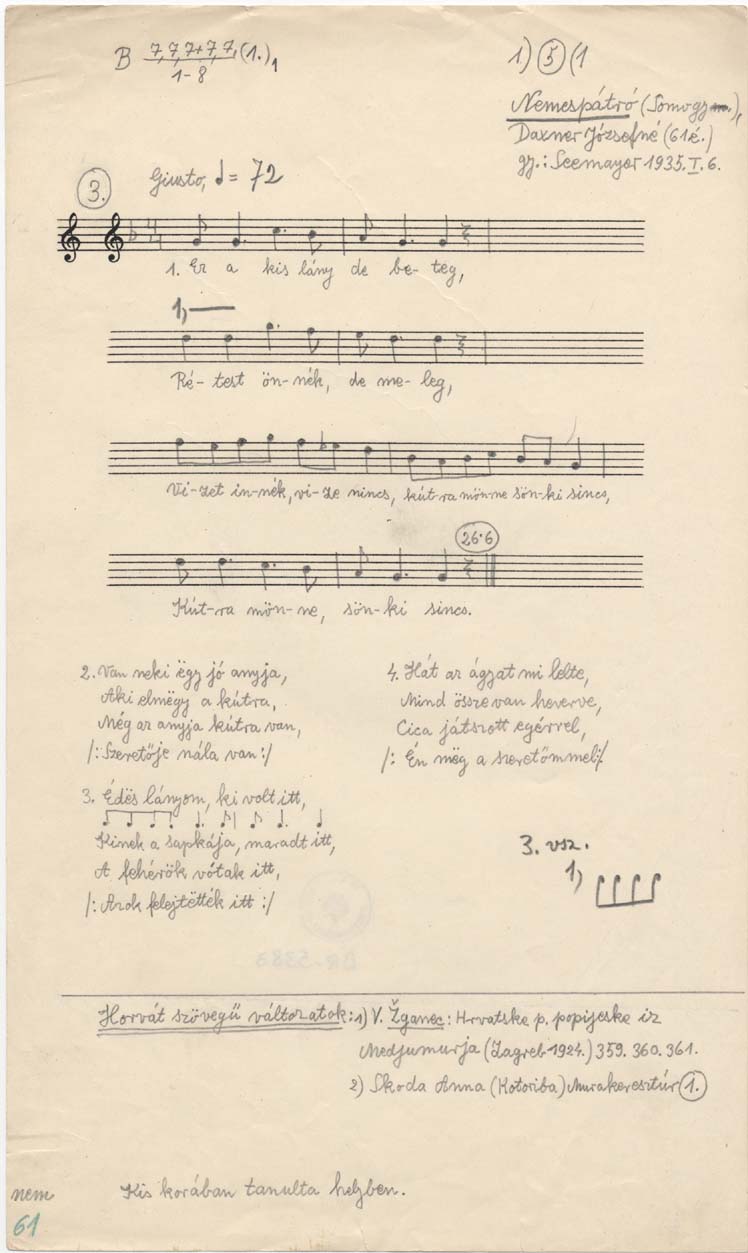 B 7, 7, 7+7, 7, (1.)₁
1-8
1) 5 (1
Nemespátró (Somogy),
Daxner Józsefné (61é.)
gy.: Seemayer 1935. I. 6.
3.
Giusto, ♩= 72
1. Ez a kis lány de be-teg,
1,
Ré-test ön-nék, de me-leg,
Vi-zet in-nék, vi-ze nincs, kút-ra mön-ne sön-ki sincs,
26·6
Kút-ra mön-ne, sön-ki sincs.
2. Van neki ëgy jó anyja,
Aki elmëgy a kútra,
Még az anyja kútra van,
/: Szeretője nála van :/
3. Édës lányom, ki volt itt,
Kinek a sapkája, maradt itt,
A fehérök vótak itt,
/: Azok felejtëtték itt :/
4. Hát az ágyat mi lelte,
Mind össze van heverve,
Cica játszott egérrel,
/: Én mëg a szeretőmmel :/
3. vsz.
1,
Horvát szövegű változatok: 1) V. Žganec: Hrvatske p. popijeske iz
Medjumurja (Zagreb 1924.) 359. 360. 361.
2) Skoda Anna (Kotoriba) Murakeresztúr 1.
Kis korában tanulta helyben.
nem
61